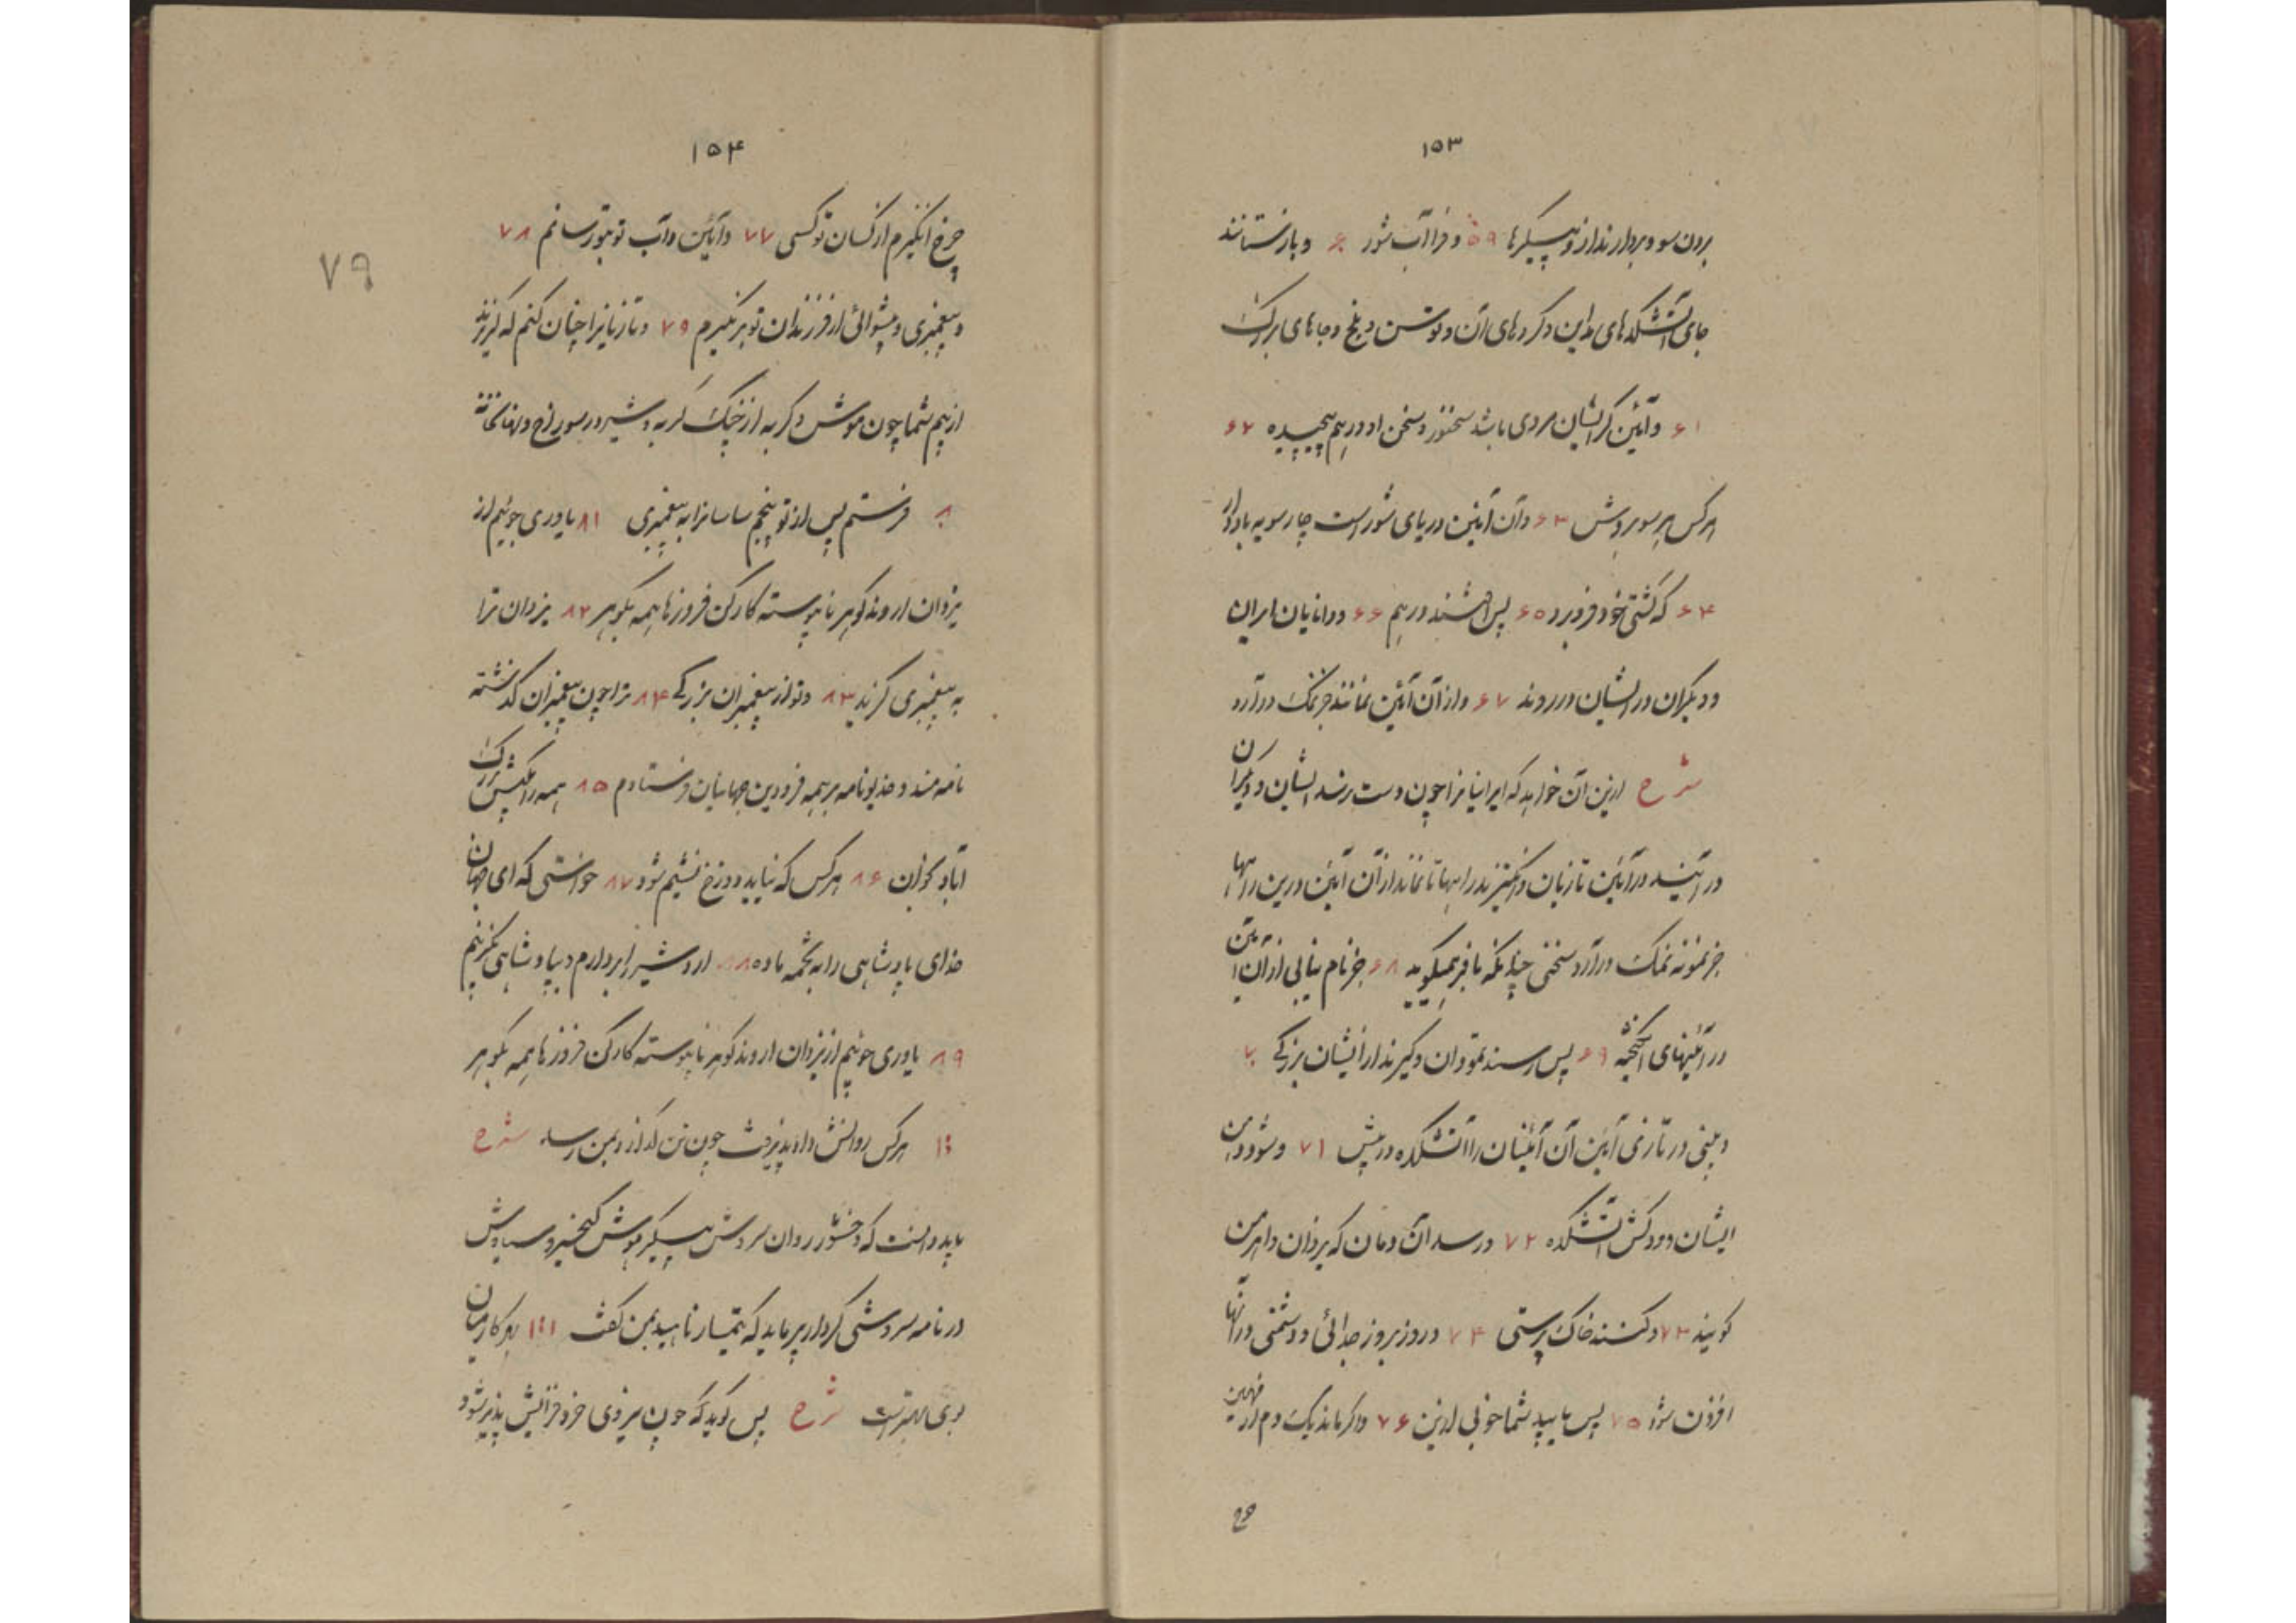 ۱۵۳
برون سو و بردارند از و پیکرها ۵۹ و فرا آب شور ۶۰ و باز ستانند
جای آتشکدهای مداین و گردهای آن و توس و بلخ و جاهای بزرک
۶۱ و آئین گر ایشان مردی باشد سخنور و سخن او درهم پیچیده ۶۲
هر کس هر سو بردش ۶۳ و آن آئین دریای شور است چار سویه باد دار
۶۴ که کشتی خود فرو برد ۶۵ پس افتند در هم ۶۶ و دانایان ایران
و دیگران در ایشان در روند ۶۷ و از آن آئین نمانند جز نمک در آرد
شرح ازین آن خواهد که ایرانیانرا چون دست رسد ایشان و دیگران
در آیند در آئین تازیان و انگیزند راهها تا نماند از آن آئین درین راهها
جز نمونه نمک در آرد سختی چنانکه بافر میگوید ۶۸ جز نام نیابی از آن آئین
در آئینهای انگیخته ۶۹ پس رسند بتو دان و گیرند از ایشان بزرکی ۷۰
و بینی در تازی آئین آن آئینیان را آتشکده در پیش ۷۱ و شود دین
ایشان دودکش آتشکده ۷۲ و رسد آن دمان که یزدان و اهرمن
کویند ۷۳ و کنند خاک پرستی ۷۴ و روز بروز جدائی و دشمنی در آنها
افزون شود ۷۵ پس یابید شما خوبی ازین ۷۶ و اگر ماند یک دم از مهین
چرخ
۱۵۴
چرخ انگیزم از کسان تو کسی ۷۷ و آئین و آب تو بتو رسانم ۷۸
و پیغمبری و پیشوائی از فرزندان تو بر نگیرم ۷۹ و تازیانرا چنان کنم که گریزند
از بیم شما چون موش و گربه از چنک گربه و شیر در سوراخ و نهانخانه
۸۰ فرستم پس از تو پنجم ساسانرا به پیغمبری ۸۱ یاوری جوئیم از
یزدان اروند گوهر ناپیوسته کارکن فروزها همه بگوهر ۸۲ یزدان ترا
به پیغمبری گزید ۸۳ و تو از پیغمبران بزرکی ۸۴ ترا چون پیغمبران گذشته
نامه مند و خدیو نامه بر همه فرودین جهانیان فرستادم ۸۵ همه را بکیش بزرک
آباد بخوان ۸۶ هر کس که نیاید دوزخ نشیم شود ۸۷ خواستی که ای جهان
خدای پادشاهی را به تخمه ما ده ۸۸ اردشیر را بردارم و بپادشاهی گزینم
۸۹ یاوری جوئیم از یزدان اروند گوهر ناپیوسته کارکن فروزها همه بگوهر
هر کس روانش داد پذیرفت چون تن گذارد بمن رسد شرح
باید دانست که وخشور روان سروش پیکر هوش کیخسرو سیاوش
در نامه سروشی کردار پرماید که تیمسار ناهید بمن گفت بهر کار میان
روی بهتر است شرح پس گوید که چون نیروی خرد فزایش پذیر شود
۷۹